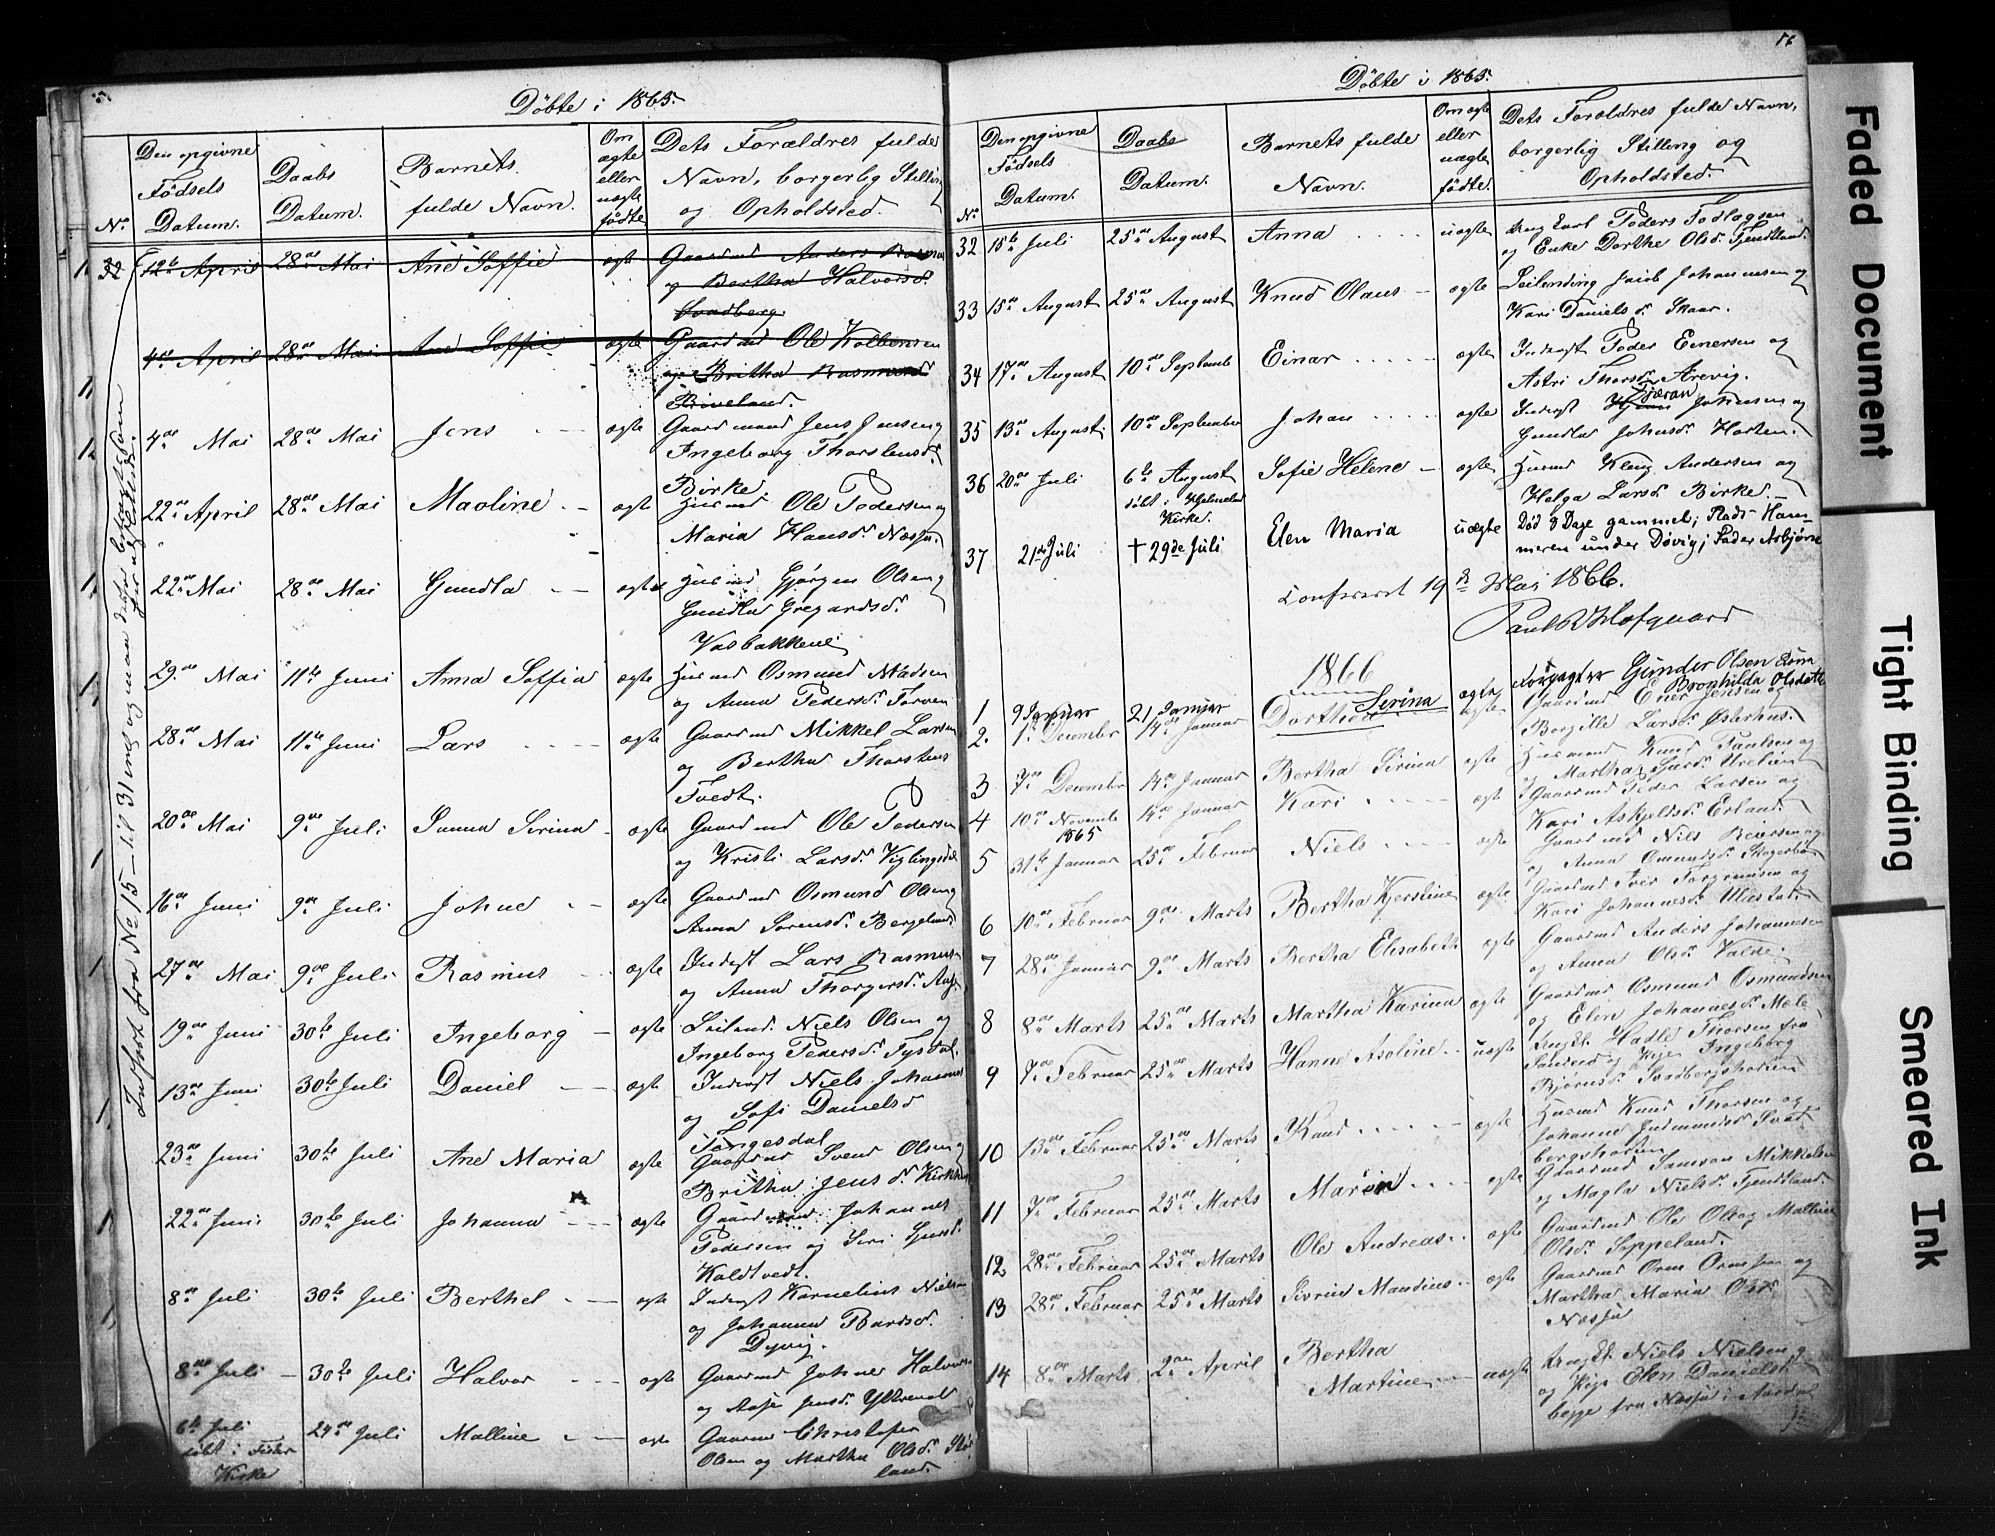 Döbte i 1865.
No Den opgivne Födsels Datum. Daabs Datum. Barnets fulde Navn. Om ægte eller uægte födte Dets Forældres fulde Navn, borgerlig Stilling og Opholdsted.
12te April 28de Mai Ane Soffie ægte Gaardmd Anders
og Bertha Halvorsd.
Svadberg.
4de April 28de Mai Ane Soffie ægte Gaardmd Ole Kolbensen
og Britha Rasmusd
Riveland.
4de Mai 28de Mai Jens ægte Gaardmand Jens Jensen og
Ingeborg Thorstensd.
Birke
22de April 28de Mai Maoline ægte Husmd Ole Pedersen og
Maria Hansd. Næssa.
22de Mai 28de Mai Gundla ægte Husmd Gjörgen Olsen og
Gundla Gregardsd.
Vasbakkene
29de Mai 11te Juni Anna Soffia ægte Husmd Osmund Madsen
og Anna Pedersd.
28de Mai 11te Juni Lars ægte Gaardmd Mikkel Larsen
og Bertha Thorstens
Tvedt.
20de Mai 9de Juli Sanna Serina ægte Gaardmd Ole Pedersen
og Kristi Larsd. Viglingsdal
16de Juni 9de Juli Johne ægte Gaardmd Osmund Olsen og
Anna Sorensd. Bergeland
27de Mai 9de Juli Rasmus ægte Inderst Lars Rasmusen
og Anna Thorgersd.
19de Juni 30te Juli Ingeborg ægte Leilend. Niels Olsen og
Ingeborg Pedersd. Tysdal.
13de Juni 30te Juli Daniel ægte Inderst Niels Johannes
og Sofi Danielsd
Tengesdal
23de Juni 30te Juli Ane Maria ægte Gaardmd Svend Olsen og
Britha Jensd.
22de Juni 30te Juli Johanna ægte Gaardmand Johannes
Pedersen og Siri
Kaldtvedt.
8de Juli 30te Juli Berthel ægte Inderst Kornelius Nielsen
og Johanna Bardsd.
Dyvig.
8de Juli 30te Juli Halvor ægte Gaardmd Johnes Halvorsen
og Aase Jensd.
6te Juli 24de Juli Malline ægte Gaardmd Christofer
döbt i Fister
Kirke
Olsen og Martha Olsd.
land.
Indfört fra No 15 til 31
56
Döbte i 1865.
No Den opgivne Födsels Datum. Daabs Datum. Barnets fulde Navn. Om ægte eller uægte födte. Dets Forældres fulde Navn, borgerlig Stilling og Opholdsted.
32 15de Juli 25de August Anna uægte Ung Karl Peders Fadlagsen
og Enke Dorthe Olsd. Tjendtland.
33 15de August 25de August Knud Olaus ægte Leilending Jacob Johannesen og
Kari Danielsd. Skaar.
34 17de August 10de Septembr Einar ægte Inderst Peder Einersen og
Astri Thorsd. Arevig.
35 13de August 10de September Johan ægte Inderst Tjæran Johnsen og
Gundla Johnsd. Hosten.
36 20de Juli 6te August Sofie Helene ægte Husmd Kleng Andersen og
döbt i Hjelmeland
Kirke.
Helga Larsd Birke.
37 21de Juli + 29de Juli Elen Maria uægte Död 8 Dage gammel; Plads Ham-
meren under Dövig; Fader Asbjörn
Confereret 19de Mai 1866.
Paul B Hofgaard
1866
1 9 Januar 21 Januar Serina ægte Forpagter Gunder Olsen
Bronhilda Olsdatte
2. 1te Decembr 14de Januar Dorthea ægte Gaardmd Einer Jensen og
Borgille Larsd. Österhus.
3 7de Decembr 14de Januar Bertha Serina ægte Husmand Knud Paulsen og
Martha
4 10de Novembr 14de Januar Kari ægte Gaardmd Peder Larsen og
1865
Kari Askjeldsd. Erland.
5 31te Januar 25de Februar Niels ægte Gaardmd Niels Beiersen og
og Anna Omundsd.
6 10de Februar 9de Marts Bertha Kjerstine ægte Gaardmd Iver Torgrimsen og
Kari Johannesd. Ulestad.
7 28de Januar 9de Marts Bertha Elisabeth ægte Gaardmd Anders Johannesen
og Anna Olsd. Valde.
8 8de Marts 25de Marts Martha Karina ægte Gaardmd Osmund Osmundsen
og Elen Johannesd. Mæle
9 7de Februar 25de Marts Hanne Aseline uægte Ungkl. Hadle Thorsen fra
Sanded og Pige Ingeborg
Björnsd. Svadbergshodien
10 13de Februar 25de Marts Knud ægte Husmd Knud Thorsen og
Johanne Gudmundsd Svad-
bergshodien
11 7de Februar 25de Marts Maren ægte Gaardmd Samson Mikkelsen
og Magla Nielsd. Tjendtland.
12 28de Februar 25de Marts Ole Andreas ægte Gaardmd Ole Olsen og Malline
Olsd. Soppeland.
13 28de Februar 25de Marts Sivrin Mandius ægte Gaardmd Orm Ormsen og
Martha Maria Olsd
Næssa
14 8de Marts 2den April Bertha
Martine uægte Ungkl. Niels Nielsen og
og Pige Elen Danielsd.
begge fra Næssa i Aardal
Faded Document
Tight Binding
Smeared Ink